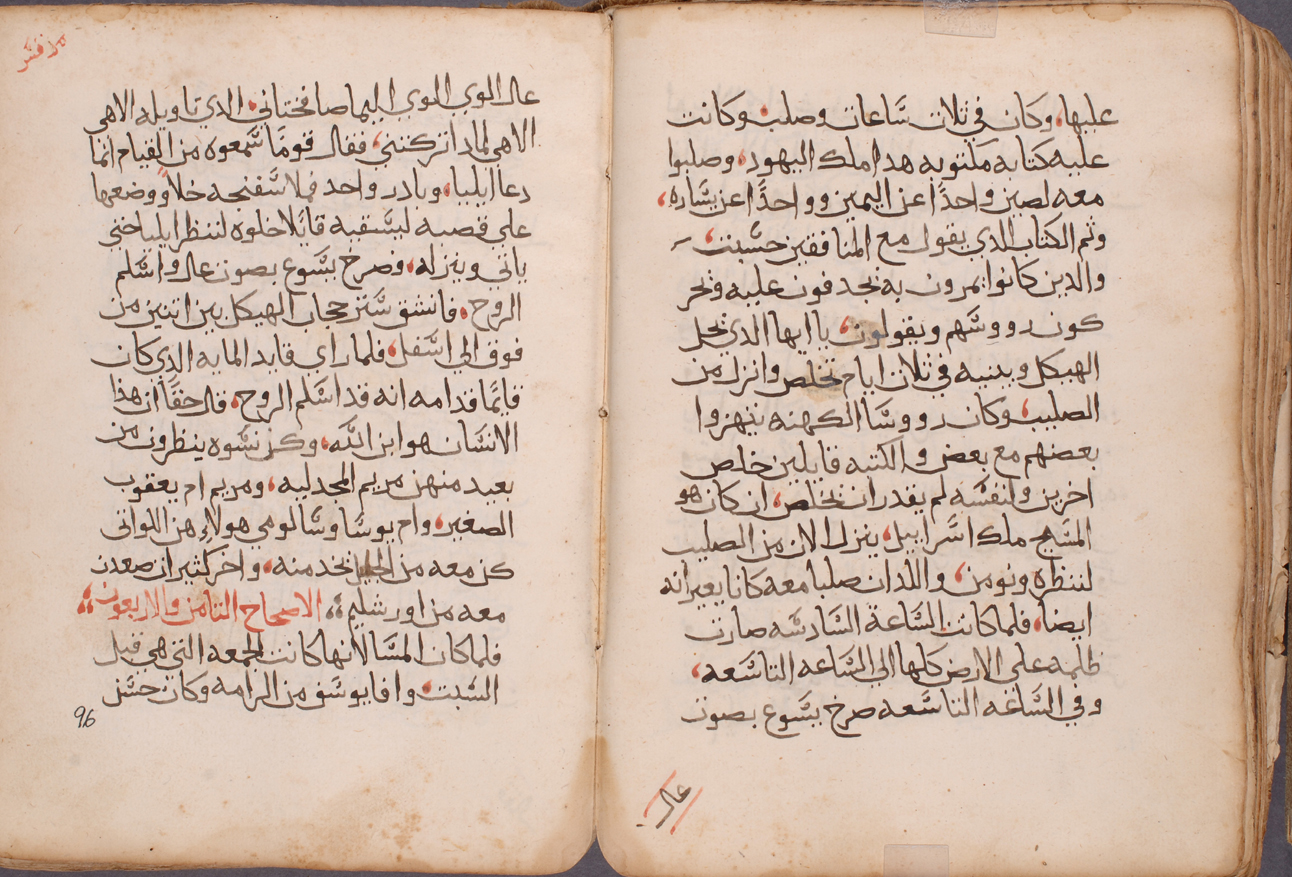 عليها، وكان في ثلاث ساعات وصلب، وكانت
عليه كتابه مكتوبه هدا ملك اليهود، وصلبوا
معه لصين واحدًا عن اليمين وواحدًا عن يساره،
وتم الكتاب الدي يقول مع المنافقين حسبت،
والدين كانوا يمرون به يجدفون عليه ويحر
كون رووسهم ويقولون، يا ايها الدي يحل
الهيكل ويبنيه في ثلاث ايام تخلص وانزل من
الصليب، وكان رووسا الكهنه يتهزوا
بعضهم مع بعض والكتبه قايلين خلص
اخرين ولنفسه لم يقدر ان يخلص، ان كان هو
المسيح ملك اسراييل، ينزل الان من الصليب
لننظره ونومن، واللدان صلبا معه كانا يعيرانه
ايضا، فلما كانت الساعة السادسه صارت
ظلمه على الارض كلها الى الساعه التاسعه،
وفي الساعه التاسعه صرخ يسوع بصوت
عال
عال الوي الوي اليما صافختاني، الدي تاويله الاهي
الاهي لمادا تركتني، فقال قومًا سمعوه من القيام انما
دعا ايليا، وبادر واحد فملا سفنجه خلاً ووضعها
على قصبه ليسقيه قايلا خلوه لننظر ايليا حتى
ياتي وينزله، فصرخ يسوع بصوت عال واسلم
الروح، فانشق ستر حجاب الهيكل بين اتنين من
فوق الى اسفل، فلما راي قايد المايه الدي كان
قايمًا قدامه انه قد اسلم الروح، قال حقًا ان هذا
الانسان هو ابن الله، وكن نسوه ينظرون من
بعيد منهن مريم المجدليه، ومريم ام يعقوب
الصغير، وام يوسا وسالومي هولاء هن اللواتى
كن معه من الجليل يخدمنه، واخر كثير ان صعدن
معه من اورشليم، الاصحاح التامن والاربعون،
فلما كان المسا لانها كانت الجمعه التي هي قبل
السبت، وافا يوسف من الرامه وكان حسن
96